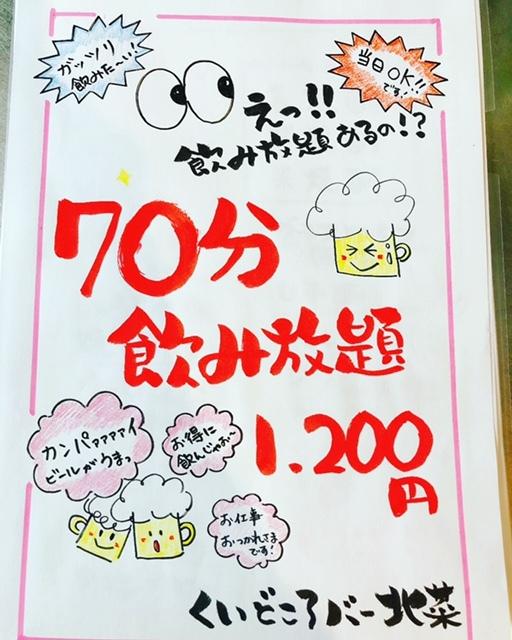 ガッツリ
飲みた〜い!
当日OK!!
です!
えっ!!
飲み放題あるの!?
70分
飲み放題
1.200
円
カンパァァァァイ
ビールがうまっ
お得に
飲んじゃお〜
お仕事
おつかれさま
です!
くいどころバー北菜